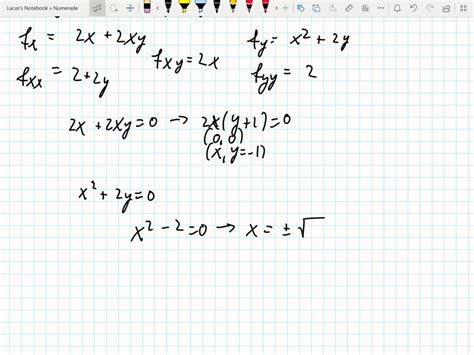 Lucas's Notebook » Numerade
fx = 2x + 2xy
fxy = 2x
fy = x² + 2y
fxx = 2 + 2y
fyy = 2
2x + 2xy = 0 → 2x(y+1) = 0
(0, 0)
(x, y=-1)
x² + 2y = 0
x² - 2 = 0 → x = ±√